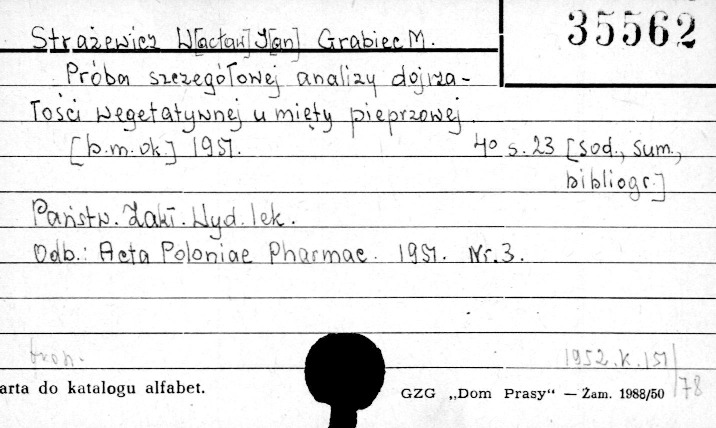 35562
Strażewicz W[acław] J[an] Grabiec M.
Próba szczegółowej analizy dojrza-
łości wegetatywnej u mięty pieprzowej.
[b.m.ok.] 1951. 4° s. 23 [sod., sum.,
bibliogr.]
Państw. Zakł. Wyd. lek.
Odb.: Acta Poloniae Pharmac. 1951. Nr. 3.
1952.K.151/78
arta do katalogu alfabet.
GZG „Dom Prasy“ — Zam. 1988/50